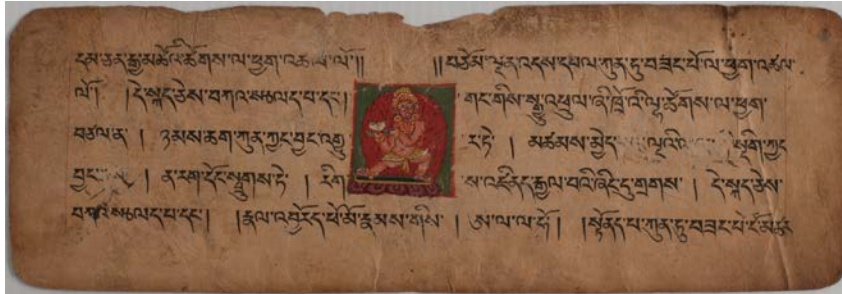 དམ་ཅན་རྒྱ་མཚོའི་ཚོགས་ལ་ཕྱག་འཚལ་ལོ།། །།བཅོམ་ལྡན་འདས་དཔལ་ཀུན་ཏུ་བཟང་པོ་ལ་ཕྱག་འཚལ་
ལོ། །དེ་སྐད་ཅེས་བཀའ་སྩལད་པ་དང་། གང་གིས་སྒྱུ་འཕྲུལ་ཞི་ཁྲོ་འི་ལྷ་ཚོགས་ལ་ཕྱག
བཙལ་ན། ཉམས་ཆག་ཀུན་ཀྱང་བྱང་འགྱུ རད་ཏེ། མཚམས་མྱེད་ ལྔའི་ སྡིག་ཀྱང
བྱང་ ། ན་རག་དོང་སྤྲུགས་ཏེ། རིག ས་འཛིནད་རྒྱལ་བའི་ཞིང་དུ་གྲགས་ །དེ་སྐད་ཅེས་
བཀའ་སྩལད་པ་དང་། །རྣལ་འབྱོརད་ཕོ་མོ་རྣམས་གིས་ །ཨ་ལ་ལ་ཧོ། །སྟོནད་པ་ཀུན་ཏུ་བཟང་པོ་ངོ་མཚར